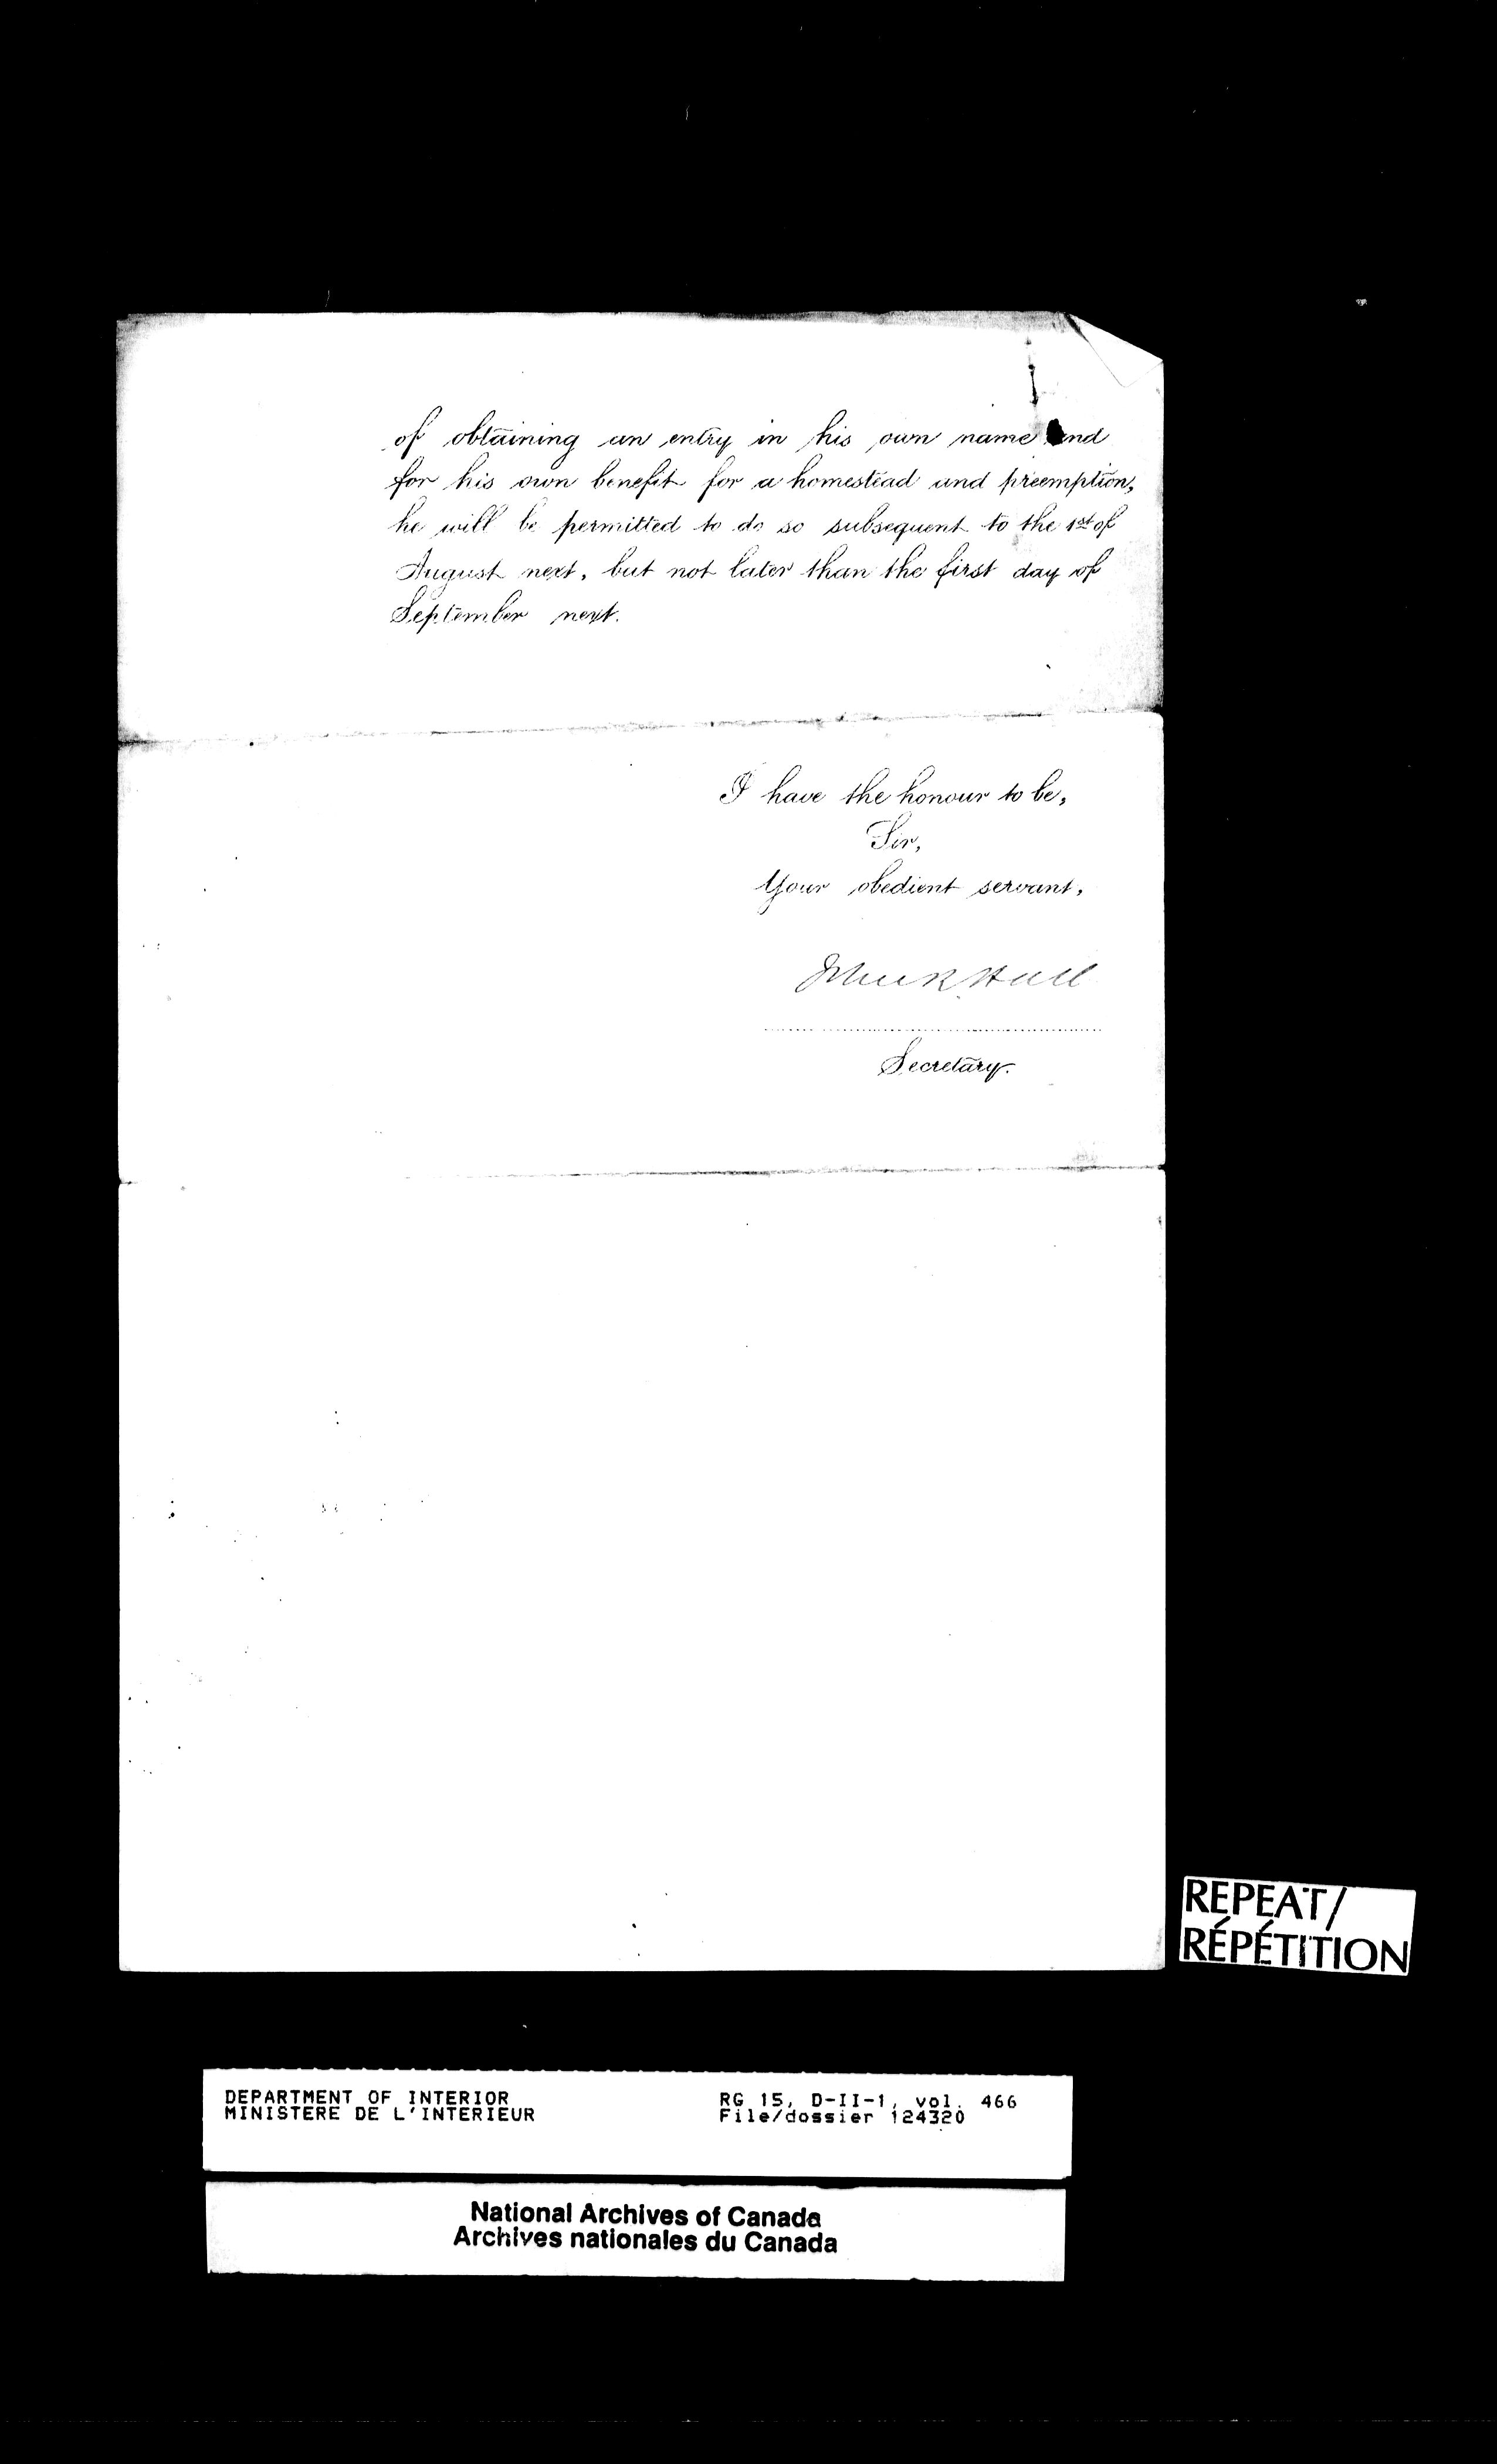 of obtaining an entry in his own name and
for his own benefit for a homestead and preemption,
he will be permitted to do so subsequent to the 1st of
August next, but not later than the first day of
September next.
I have the honour to be,
Sir,
Your obedient servant,
Hall
Secretary.
REPEAT/
RÉPÉTITION
DEPARTMENT OF INTERIOR
MINISTERE DE L'INTERIEUR
RG 15, D-II-1, vol. 466
File/dossier 124320
National Archives of Canada
Archives nationales du Canada